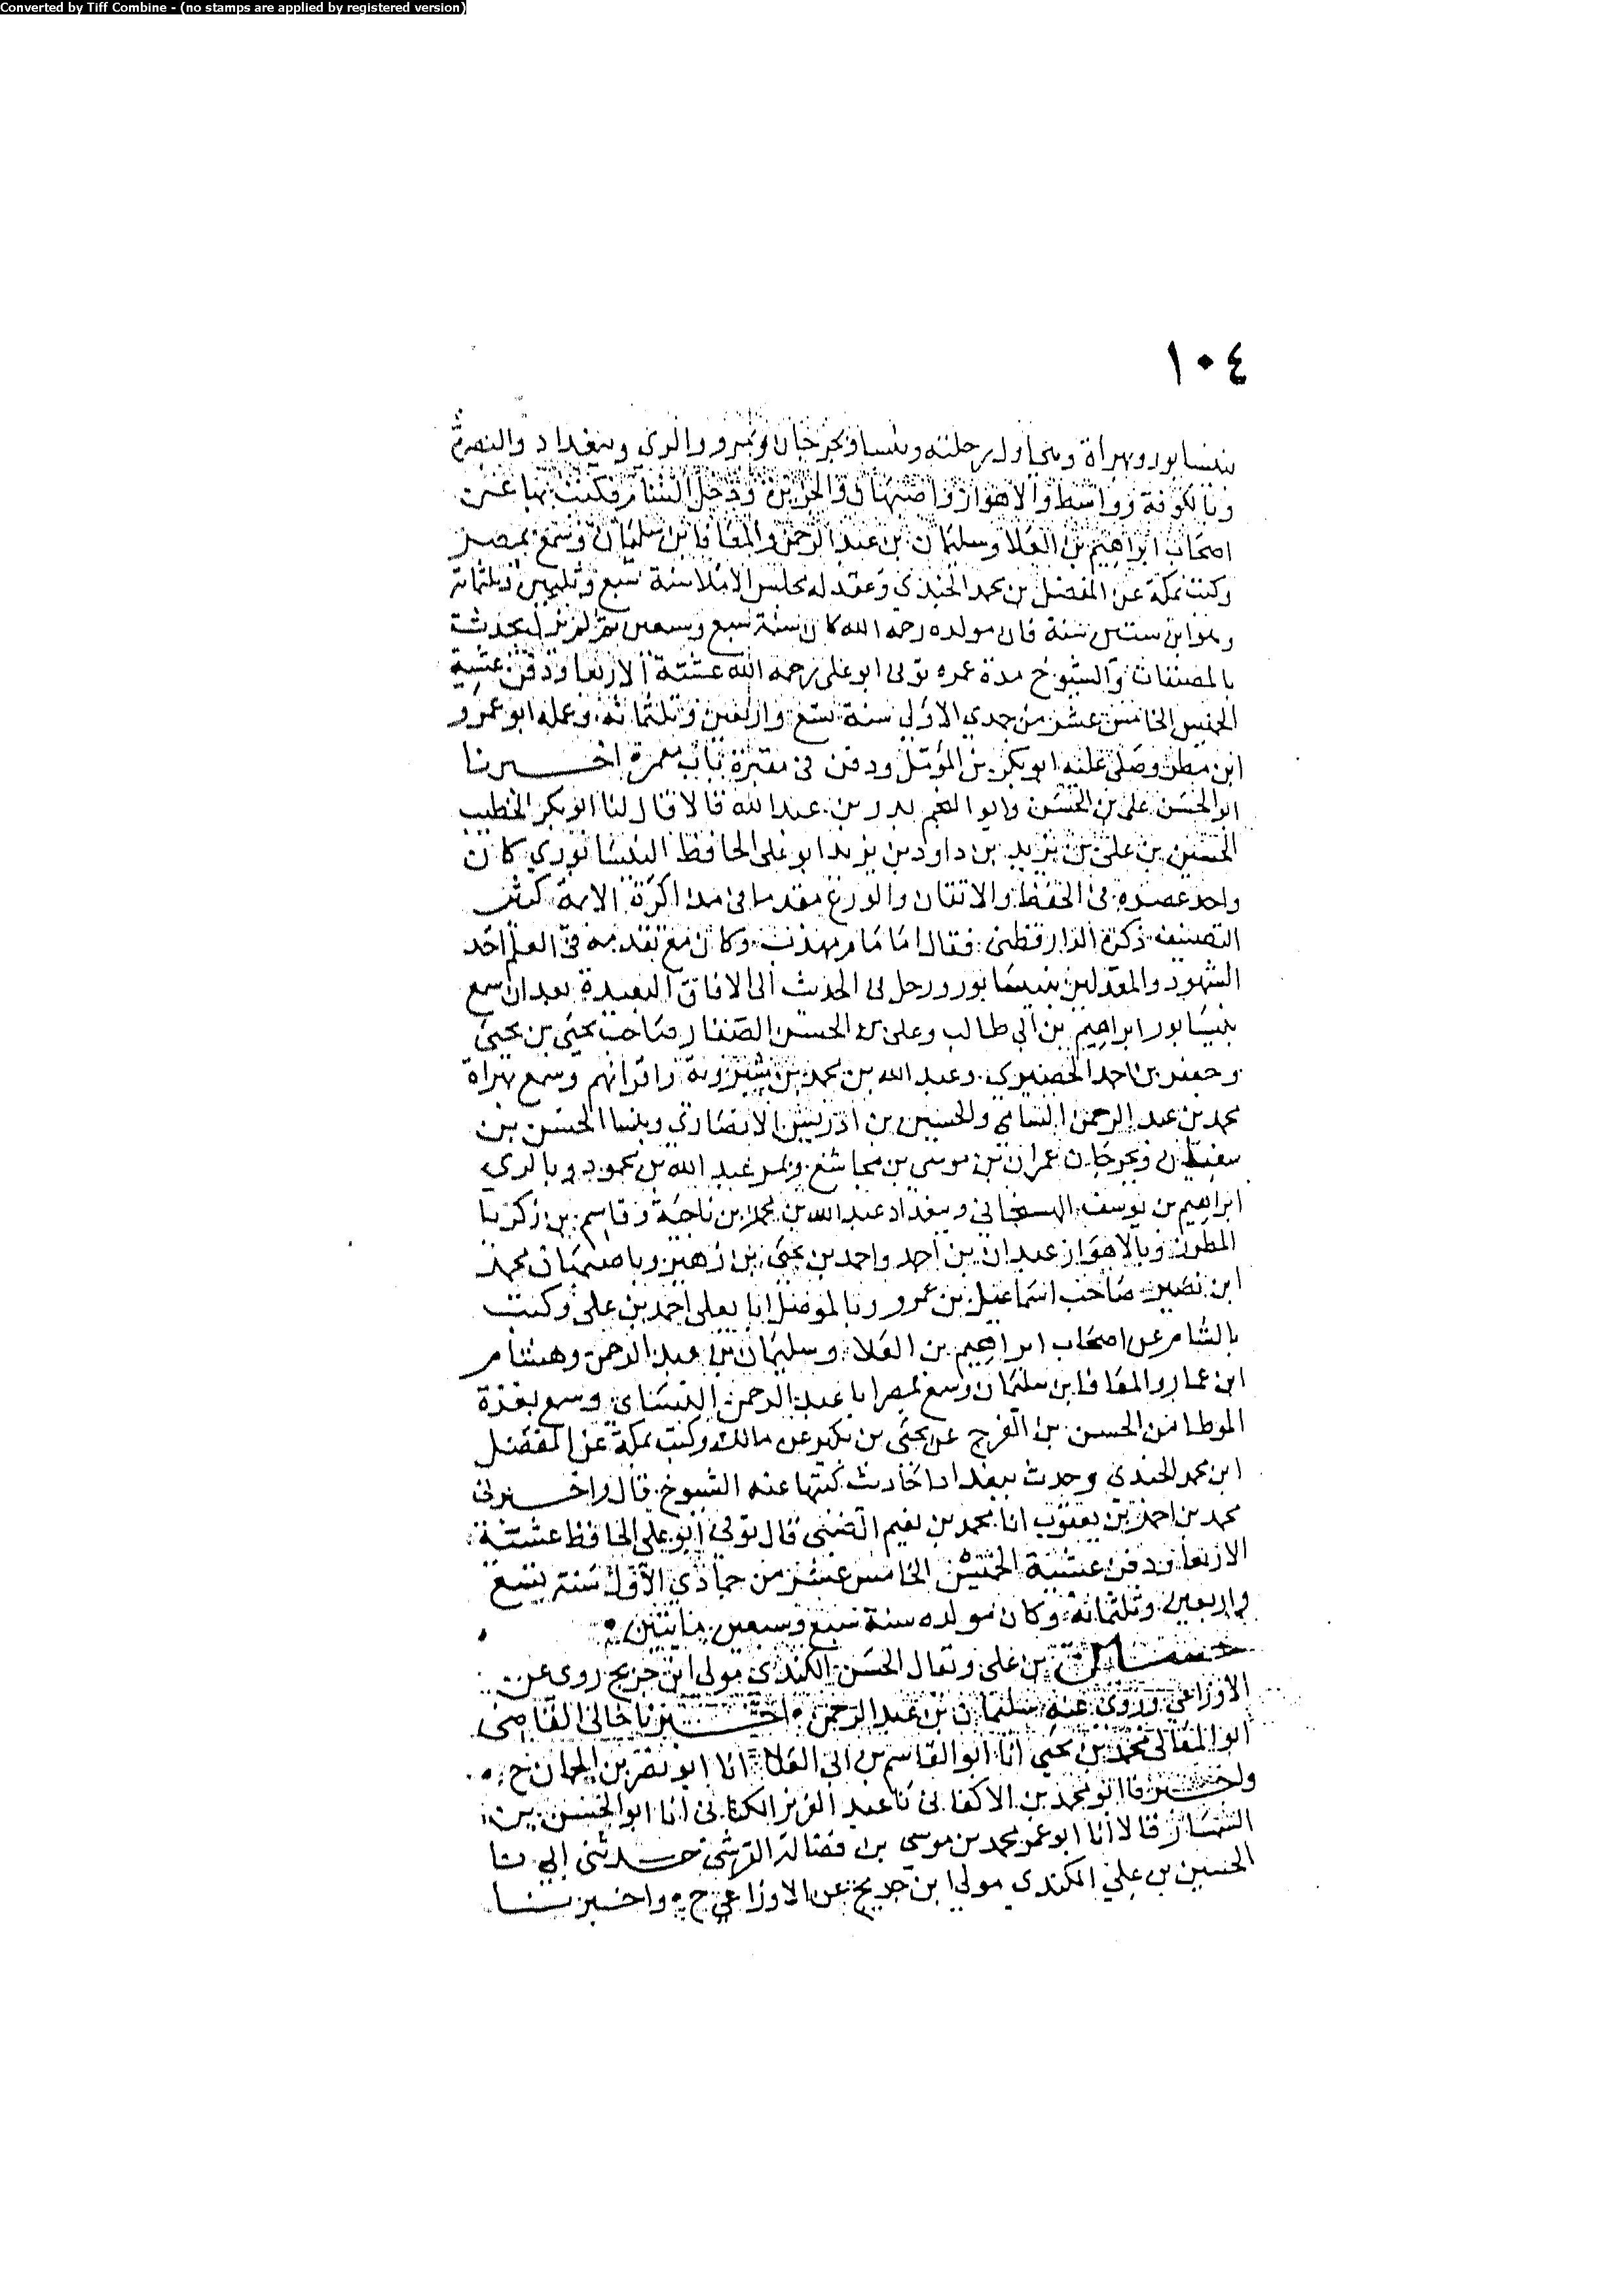 Converted by Tiff Combine - (no stamps are applied by registered version)
١٠٤
بنيسابور وبهراة وبنحاول رحلته وبنسا وبجرجان وبمرو والري وببغداد والبصرة
وبالكوفة وواسط والاهواز واصبهان والجزيرة ودخل الشام فكتب بها عن
اصحاب ابراهيم بن العلا وسليمان بن عبد الرحمن والمعافا بن سليمان وسمع بمصر
وكتب بمكة عن المفضل بن محمد الجندي وعقد له مجلس الاملا سنة سبع وثلثين وثلثمائة
وهو ابن ستين سنة فان مولده رحمه الله كان سنة سبع وسبعين ثم لم يزل يحدث
بالمصنفات والشيوخ مدة عمره توفي ابو علي رحمه الله عشية الاربعا ودفن عشية
الخميس الخامس عشر من جمدي الاولى سنة تسع واربعين وثلثمائة وغسله ابو عمرو
ابن مطر وصلى عليه ابو بكر بن المؤمل ودفن في مقبرة باب معمر اخبرنا
ابو الحسن علي بن الحسن وابو النجم بدر بن عبد الله قالا قال لنا ابو بكر الخطيب
الحسين بن علي بن يزيد بن داود بن يزيد ابو علي الحافظ النيسابوري كان
واحد عصره في الحفظ والاتقان والورع مقدما في مذاكرة الايمة كثير
التصنيف ذكره الدارقطني فقال امام مهذب وكان مع تقدمه في العلم احد
الشهود والمعدلين بنيسابور ورحل في الحدث الى الافاق البعيدة بعد ان سمع
بنيسابور ابراهيم بن ابي طالب وعلي بن الحسن الصفار صاحب يحيى بن يحيى
وجعفر بن احمد الحصيري وعبد الله بن محمد بن شيرويه واقرانهم وسمع بهراة
محمد بن عبد الرحمن السامي والحسين بن ادريس الانصاري وبنسا الحسن بن
سفيان وبجرجان عمران بن موسى بن مجاشع وبمرو عبد الله بن محمود وبالري
ابراهيم بن يوسف الهسنجاني وببغداد عبد الله بن محمد بن ناجية وقاسم بن زكريا
المطرز وبالاهواز عبدان بن احمد واحمد بن يحيى بن زهير وباصبهان محمد
ابن نصير صاحب اسماعيل بن عمرو وبالموصل ابا يعلى احمد بن علي وكتب
بالشام عن اصحاب ابراهيم بن العلا وسليمان بن عبد الرحمن وهشام
ابن عمار والمعافا بن سليمان وسمع بمصر ابا عبد الرحمن النسائي وسمع بغزة
الموطا من الحسن بن الفرج عن يحيى بن بكير عن مالك وكتب بمكة عن المفضل
ابن محمد الجندي وحدث ببغداد احاديث كتبها عنه الشيوخ قال واخبرني
محمد بن احمد بن يعقوب انا محمد بن نعيم الضبي قال توفي ابو علي الحافظ عشية
الاربعا ودفن عشية الخميس الخامس عشر من جمادي الاولى سنة تسع
واربعين وثلثمائة وكان مولده سنة سبع وسبعين مايتين
بن علي ويقال الحسن الكندي مولى ابن جريج روى عن
الاوزاعي وروى عنه سليمان بن عبد الرحمن اخبرنا خالي القاضي
ابو المعالي محمد بن يحيى انا ابو القاسم بن ابي العلا انا ابو نصر بن الجان ح
واخبرنا ابو محمد بن الاكفاني نا عبد العزيز الكتاني انا ابو الحسن بن
السمسار قالا انا ابو عمر محمد بن موسى بن فضالة القرشي حدثني ابي نا
الحسين بن علي الكندي مولى ابن جريج عن الاوزاعي ح واخبرنا